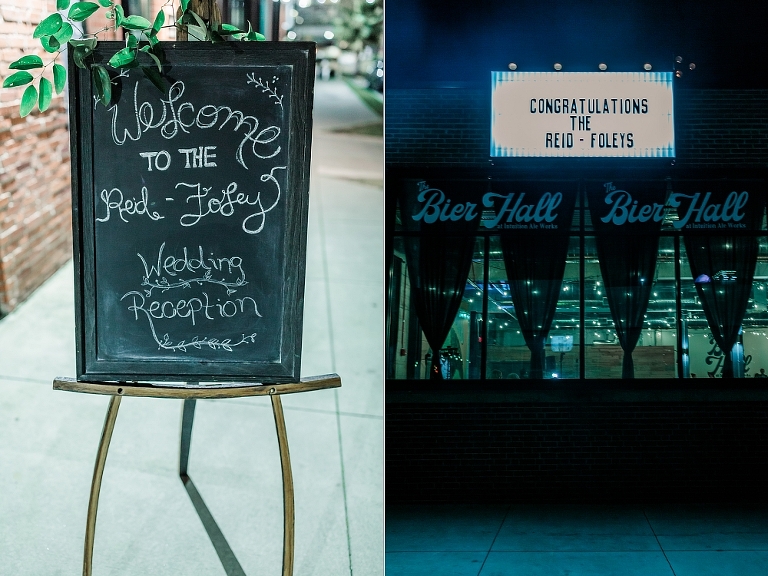 Welcome
TO THE
Reid-Foley's
Wedding
Reception
CONGRATULATIONS
THE
REID - FOLEYS
The
Bier Hall
at Intuition Ale Works
The
Bier Hall
at Intuition Ale Works
Hall